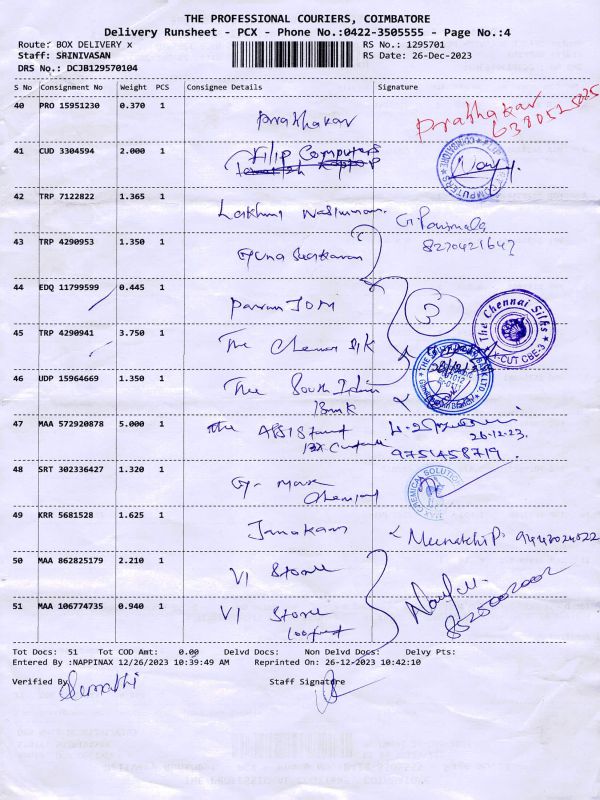 THE PROFESSIONAL COURIERS, COIMBATORE
Delivery Runsheet - PCX - Phone No.:0422-3505555 - Page No.:4
Route: BOX DELIVERY x
RS No.: 1295701
Staff: SRINIVASAN
RS Date: 26-Dec-2023
DRS No.: DCJB129570104
S No Consignment No Weight PCS Consignee Details Signature
40 PRO 15951230 0.370 1
Prabhakar
Prabhakar
41 CUD 3304594 2.000 1
Filip Computers
42 TRP 7122822 1.365 1
43 TRP 4290953 1.350 1
8270421647
44 EDQ 11799599 0.445 1
3
The Chennai Silks
X-CUT CBE-3
45 TRP 4290941 3.750 1
The Chennai Silk
46 UDP 15964669 1.350 1
The South Indian
Bank
47 MAA 572920878 5.000 1
The
26-12-23
9751458719
48 SRT 302336427 1.320 1
CHEMICAL SOLUTION
49 KRR 5681528 1.625 1
Janakam
Meenakshi P.
50 MAA 862825179 2.210 1
VI Store
51 MAA 106774735 0.940 1
VI Store
8525002002
Tot Docs: 51 Tot COD Amt: 0.00 Delvd Docs: Non Delvd Docs: Delvy Pts:
Entered By :NAPPINAX 12/26/2023 10:39:49 AM Reprinted On: 26-12-2023 10:42:10
Verified By
Staff Signature